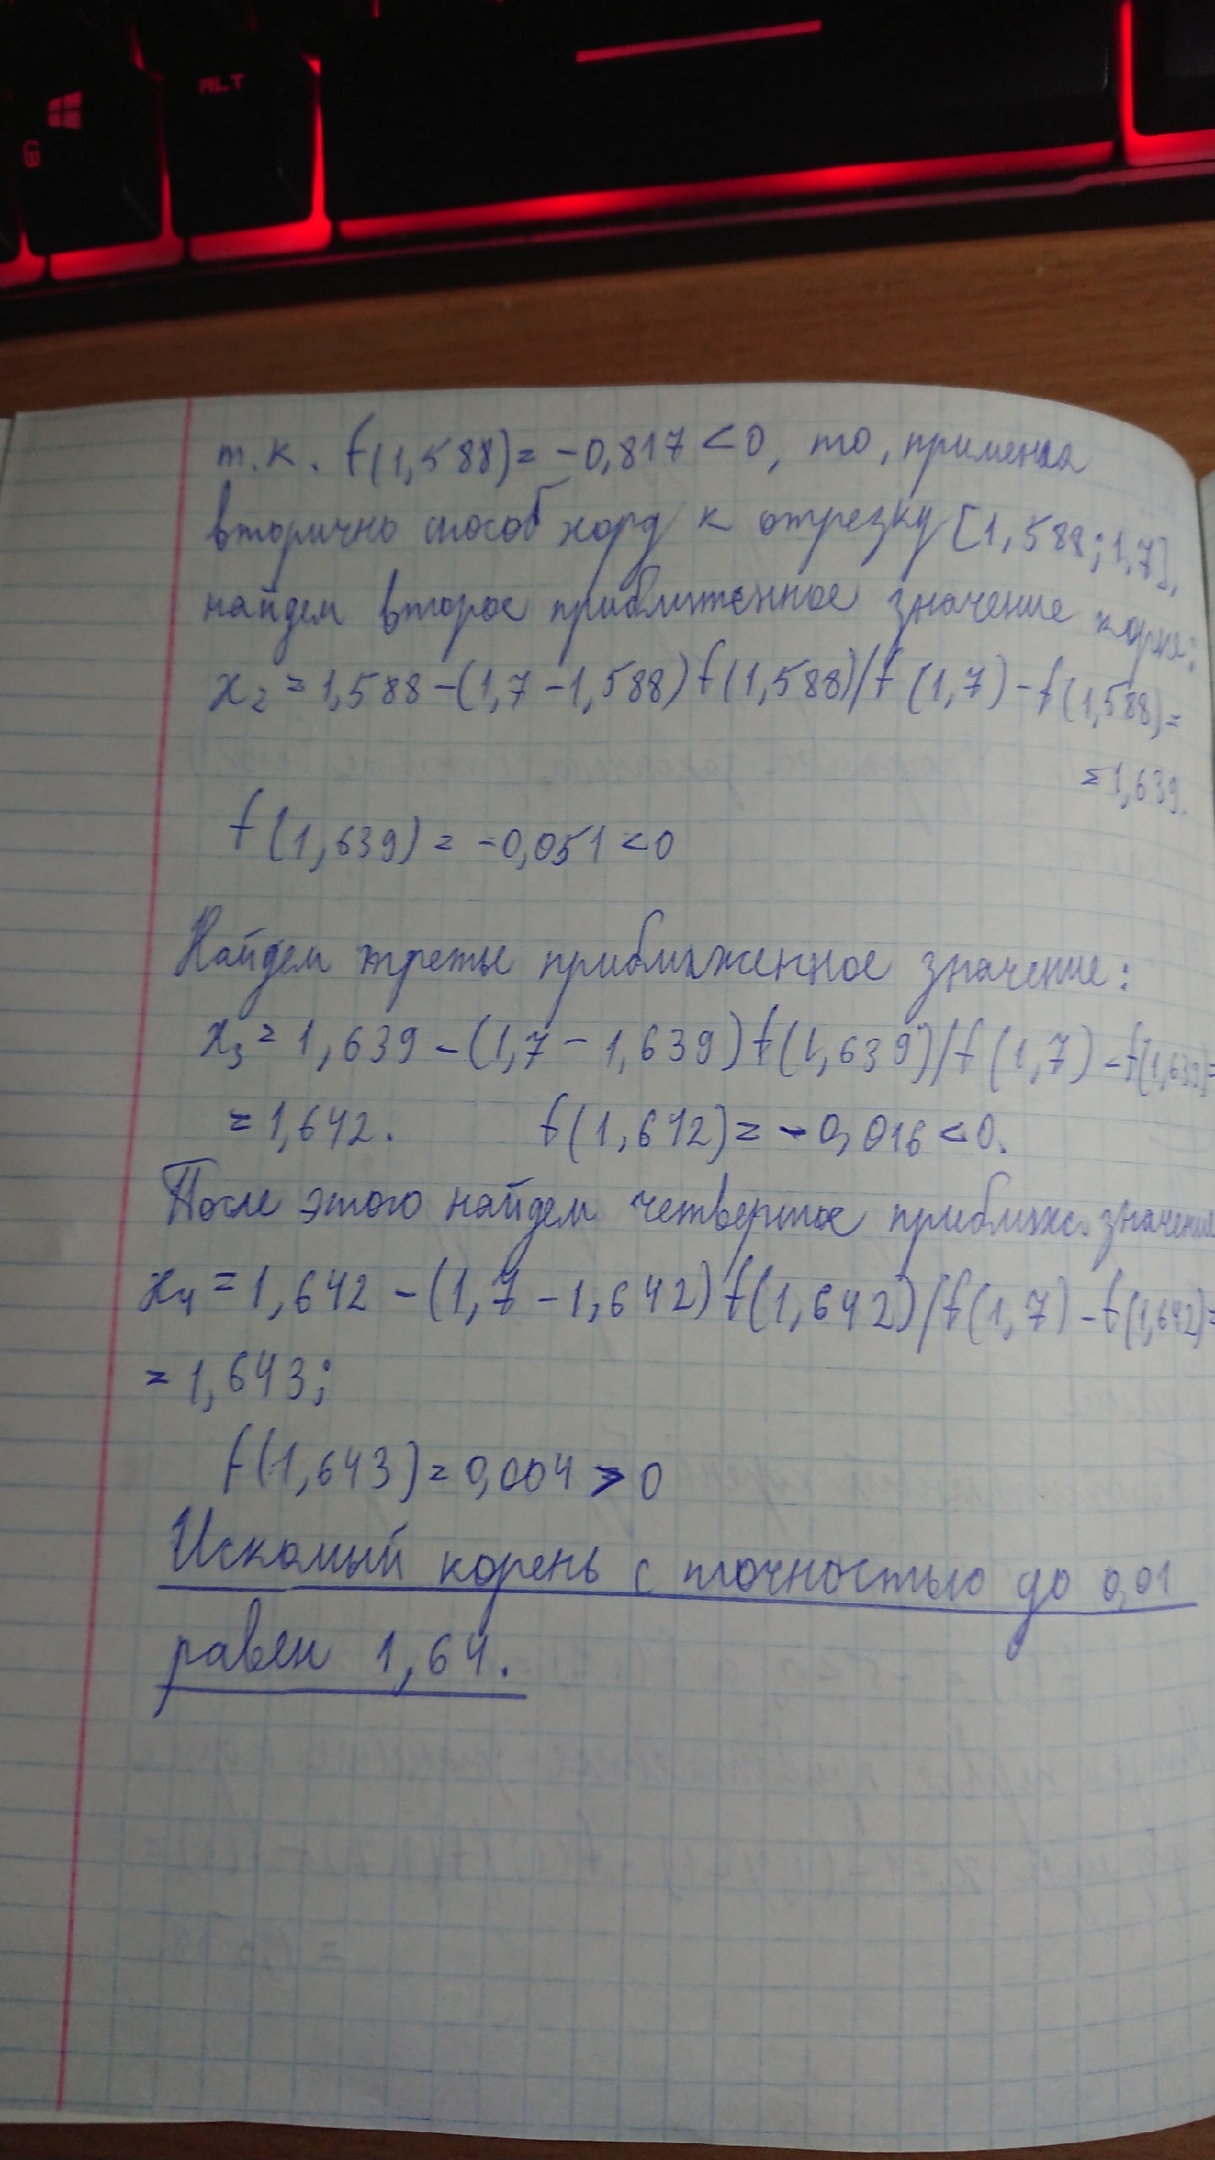 ALT
т.к. f(1,588)= -0,817 <0, то, применяя
вторично способ хорд к отрезку [1,588;1,7],
найдем второе приближенное значение корня:
x₂ = 1,588 -(1,7 -1,588) f(1,588)/f (1,7) - f(1,588)=
= 1,639.
f(1,639) = -0,051 <0
Найдем третье приближенное значение:
x₃ = 1,639 -(1,7 - 1,639) f(1,639)/f(1,7) -f(1,639)=
= 1,642. f(1,642)= -0,016 <0.
После этого найдем четвертое приближ. значение
x₄ = 1,642 -(1,7 -1,642) f(1,642)/f(1,7) -f(1,642)=
= 1,643;
f(1,643)=0,004 > 0
Искомый корень с точностью до 0,01
равен 1,64.